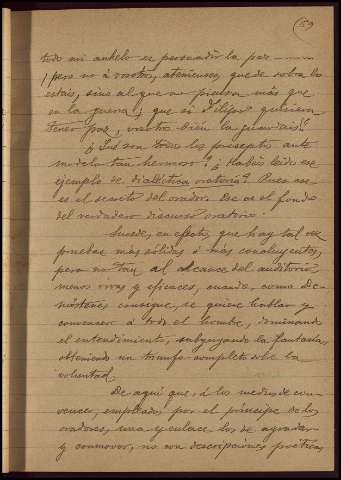 (59
todo mi anhelo es persuadir la paz ......
¡pero no á vosotros, atenienses, que de sobra lo
estais, sino al que no piensa más que
en la guerra; que si Filipo quisiera
tener paz, vosotros bién la guardais!!
¿Qué son todos los preceptos ante
modelo tan hermoso? ¿Habeis leido ese
ejemplo de dialéctica oratoria? Pues ese
es el secreto del orador. Ese es el fondo
del verdadero discurso oratorio.
Sucede, en efecto, que hay tal vez
pruebas más sólidas ó más concluyentes,
pero no tan al alcance del auditorio,
menos vivas y eficaces, cuando, como De-
móstenes consigue, se quiere hablar y
convencer á todo el hombre, dominando
el entendimiento, subyugando la fantasía,
obteniendo un triunfo completo sobre la
voluntad.
De aquí que, á los medios de con-
vencer, empleados por el príncipe de los
oradores, una y enlace los de agradar
y conmover, no con descripciones poéticas